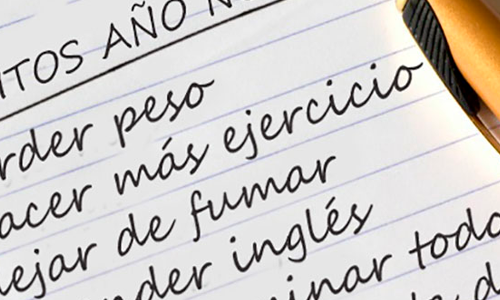 ITOS AÑO N
rder peso
acer más ejercicio
ejar de fumar
nder inglés
inar todo